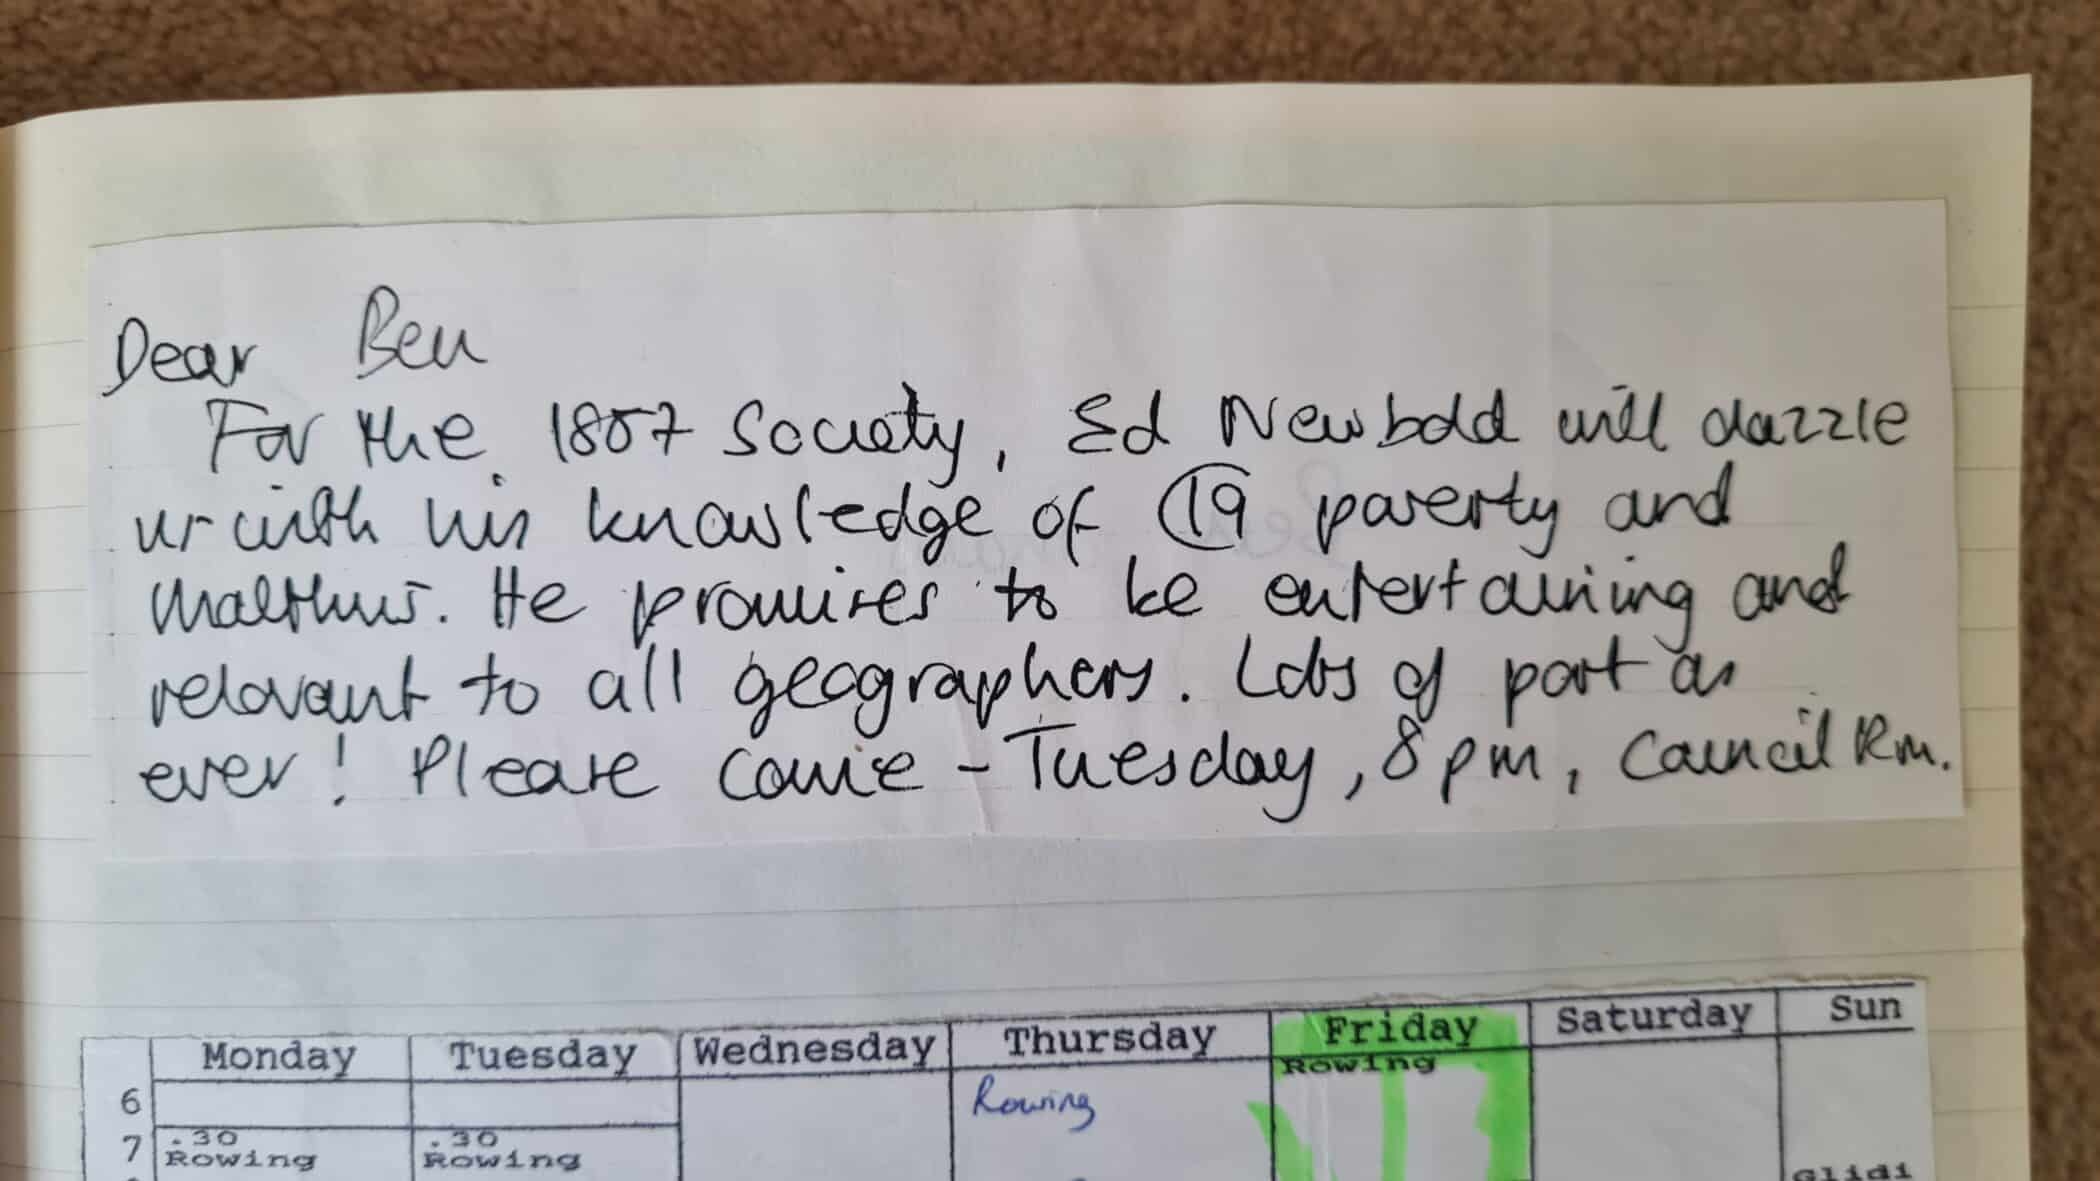 Dear Ben
For the 1807 Society, Ed Newbold will dazzle
us with his knowledge of C19 poverty and
Malthus. He promises to be entertaining and
relevant to all geographers. Lots of port as
ever! Please come - Tuesday, 8pm, Council Rm.
Monday Tuesday Wednesday Thursday Friday Saturday Sun
6 Rowing Rowing
7 .30 .30
Rowing Rowing
Glidi